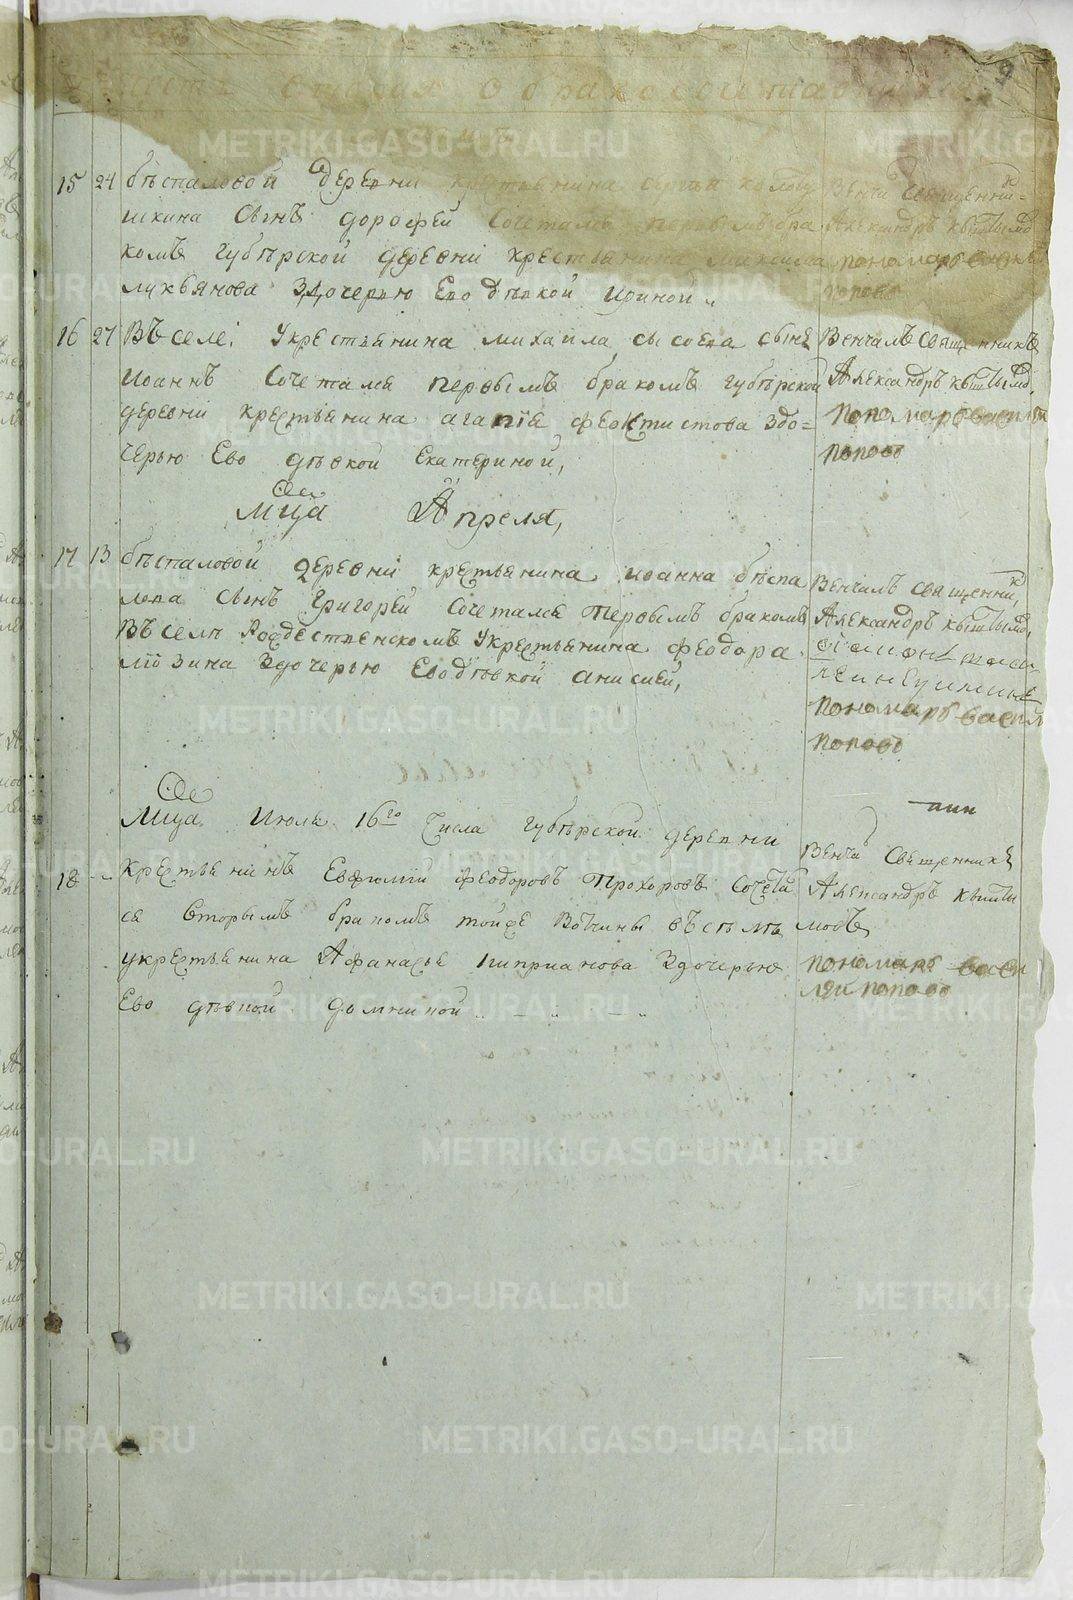 9
часть вторая о бракосочитавшихся
15 24 бѣспаловой деревни крестьянина
сынъ дорофей Сочетался первымъ бра
комъ губѣрской деревни крестьянина максима
лукьянова Здочерью Ево дѣвкой Ириной
Венча Священни
Александръ кыштымо
пономарь
попово
16 27 Въ селе Укрестьянина михаила сысоева сынъ
Иоаннъ Сочетался первымъ бракомъ губѣрской
деревни крестьянина агапіѧ феоктистова Здо=
черью Ево дѣвкой Екатериной,
Венчалъ Священникъ
Александръ кыштымо
пономарь васили
попово
Мца Апреля,
17 13 бѣспаловой деревні крестьянина иоанна бѣспа
лова Сынъ Григорей Сочетался первымъ бракомъ
Въ селѣ Рождественскомъ Укрестьянина феодора
Здочерью Ево дѣвкой анисией,
Венчалъ Священни
Александръ кыштымо
пономарь васил
попово
Мца Июля 16го Числа губѣрской деревни
18 крестьянинъ Евфимий феодоровъ Прохоровъ Сочета
ся вторымъ бракомъ тойже Вотчины въ селѣ
укрестьянина Афанасья киприанова Здочерью
Ево дѣвкой домникой
Венча Священникъ
Александръ кышты
мовъ
пономарь васи
лей попово
METRIKI.GASO-URAL.RU